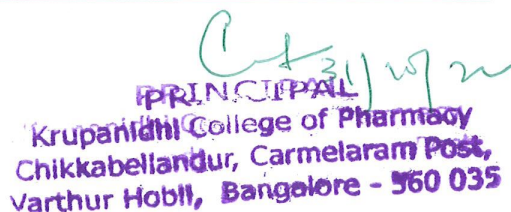 31/10/22
PRINCIPAL
Krupanidhi College of Pharmacy
Chikkabellandur, Carmelaram Post,
Varthur Hobli, Bangalore - 560 035